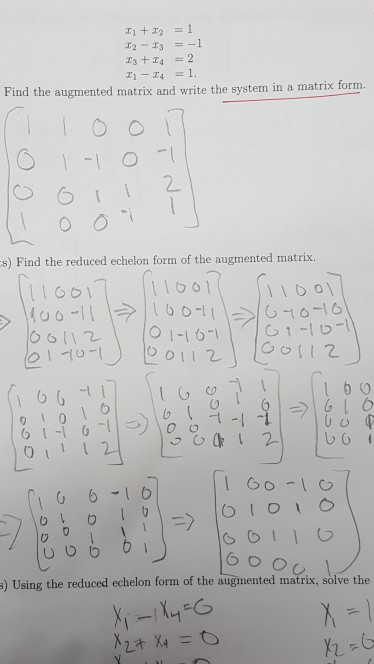 x₁ + x₂ = 1
x₂ − x₃ = −1
x₃ + x₄ = 2
x₁ − x₄ = 1.
Find the augmented matrix and write the system in a matrix form.
1 1 0 0 1
0 1 -1 0 -1
0 0 1 1 2
1 0 0 -1 1
s) Find the reduced echelon form of the augmented matrix.
1 1 0 0 1 ⇒ 1 1 0 0 1 ⇒ 1 1 0 0 1
1 0 0 -1 1 1 0 0 -1 1 0 -1 0 -1 0
0 0 1 1 2 0 1 -1 0 -1 0 1 -1 0 -1
0 1 -1 0 -1 0 0 1 1 2 0 0 1 1 2
1 0 0 -1 1 ⇒ 1 0 0 -1 1 ⇒ 1 0 0
0 1 0 1 0 0 1 0 1 0 0 1 0
0 1 -1 0 -1 0 0 -1 -1 -1 0 0
0 1 1 2 0 0 1 2 0 0 1
⇒ 1 0 0 -1 0 ⇒ 1 0 0 -1 0
0 1 0 1 0 0 1 0 1 0
0 0 1 1 1 0 0 1 1 0
0 0 0 0 1 0 0 0 0 1
s) Using the reduced echelon form of the augmented matrix, solve the
x₁ - x₄ = 0 x₁ = 1
x₂ + x₄ = 0 x₂ = 0